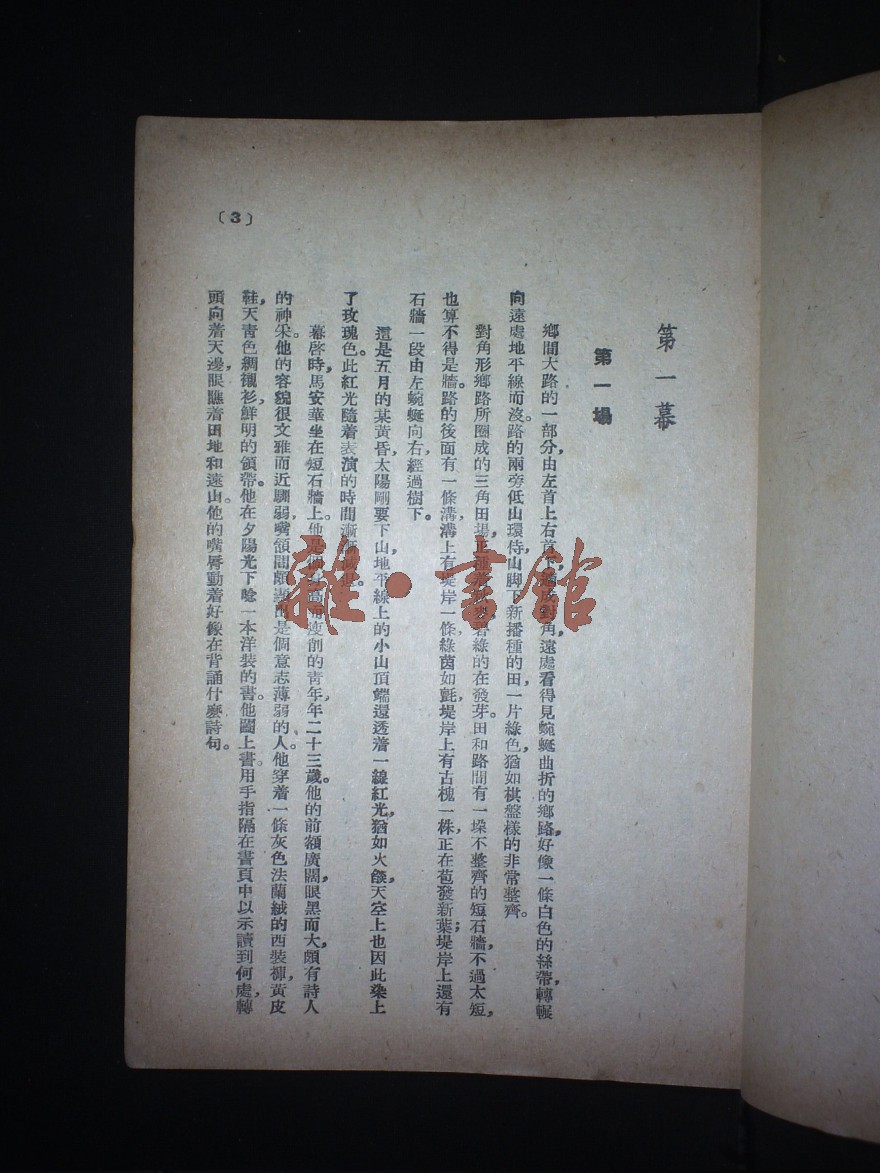 第一幕
第一場
鄉間大路的一部分，由左首上右首下，
對角遠處看得見蜿蜒曲折的鄉路，好像一條白色的絲帶，轉輾
向遠處地平線而沒。路的兩旁低山環侍，山脚下新播種的田，一片綠色，猶如棋盤樣的非常整齊。
對角形鄉路所圈成的三角田場，碧綠的在發芽。田和路間有一垜不整齊的短石牆，不過太短，
也算不得是牆。路的後面有一條溝，溝上有堤岸一條，綠茵如氈，堤岸上有古槐一株，正在苞發新葉；堤岸上還有
石牆一段，由左蜿蜒向右，經過樹下。
這是五月的某黃昏，太陽剛要下山，地平線上的小山頂端還透着一線紅光，猶如火燄，天空上也因此染上
了玫瑰色。此紅光隨着表演的時間漸漸
幕啓時，馬安華坐在短石牆上。他是個身高而瘦削的青年，年二十三歲。他的前額廣闊，眼黑而大，頗有詩人
的神采。他的容貌很文雅而近馴弱，嘴頷間頗露出是個意志薄弱的人。他穿着一條灰色法蘭絨的西裝褲，黃皮
鞋，天青色綢襯衫，鮮明的領帶。他在夕陽光下唸一本洋裝的書。他闔上書，用手指隔在書頁中以示讀到何處，轉
頭向着天邊，眼瞧着田地和遠山。他的嘴唇動着，好像在背誦什麽詩句。
〔3〕
雜·書館